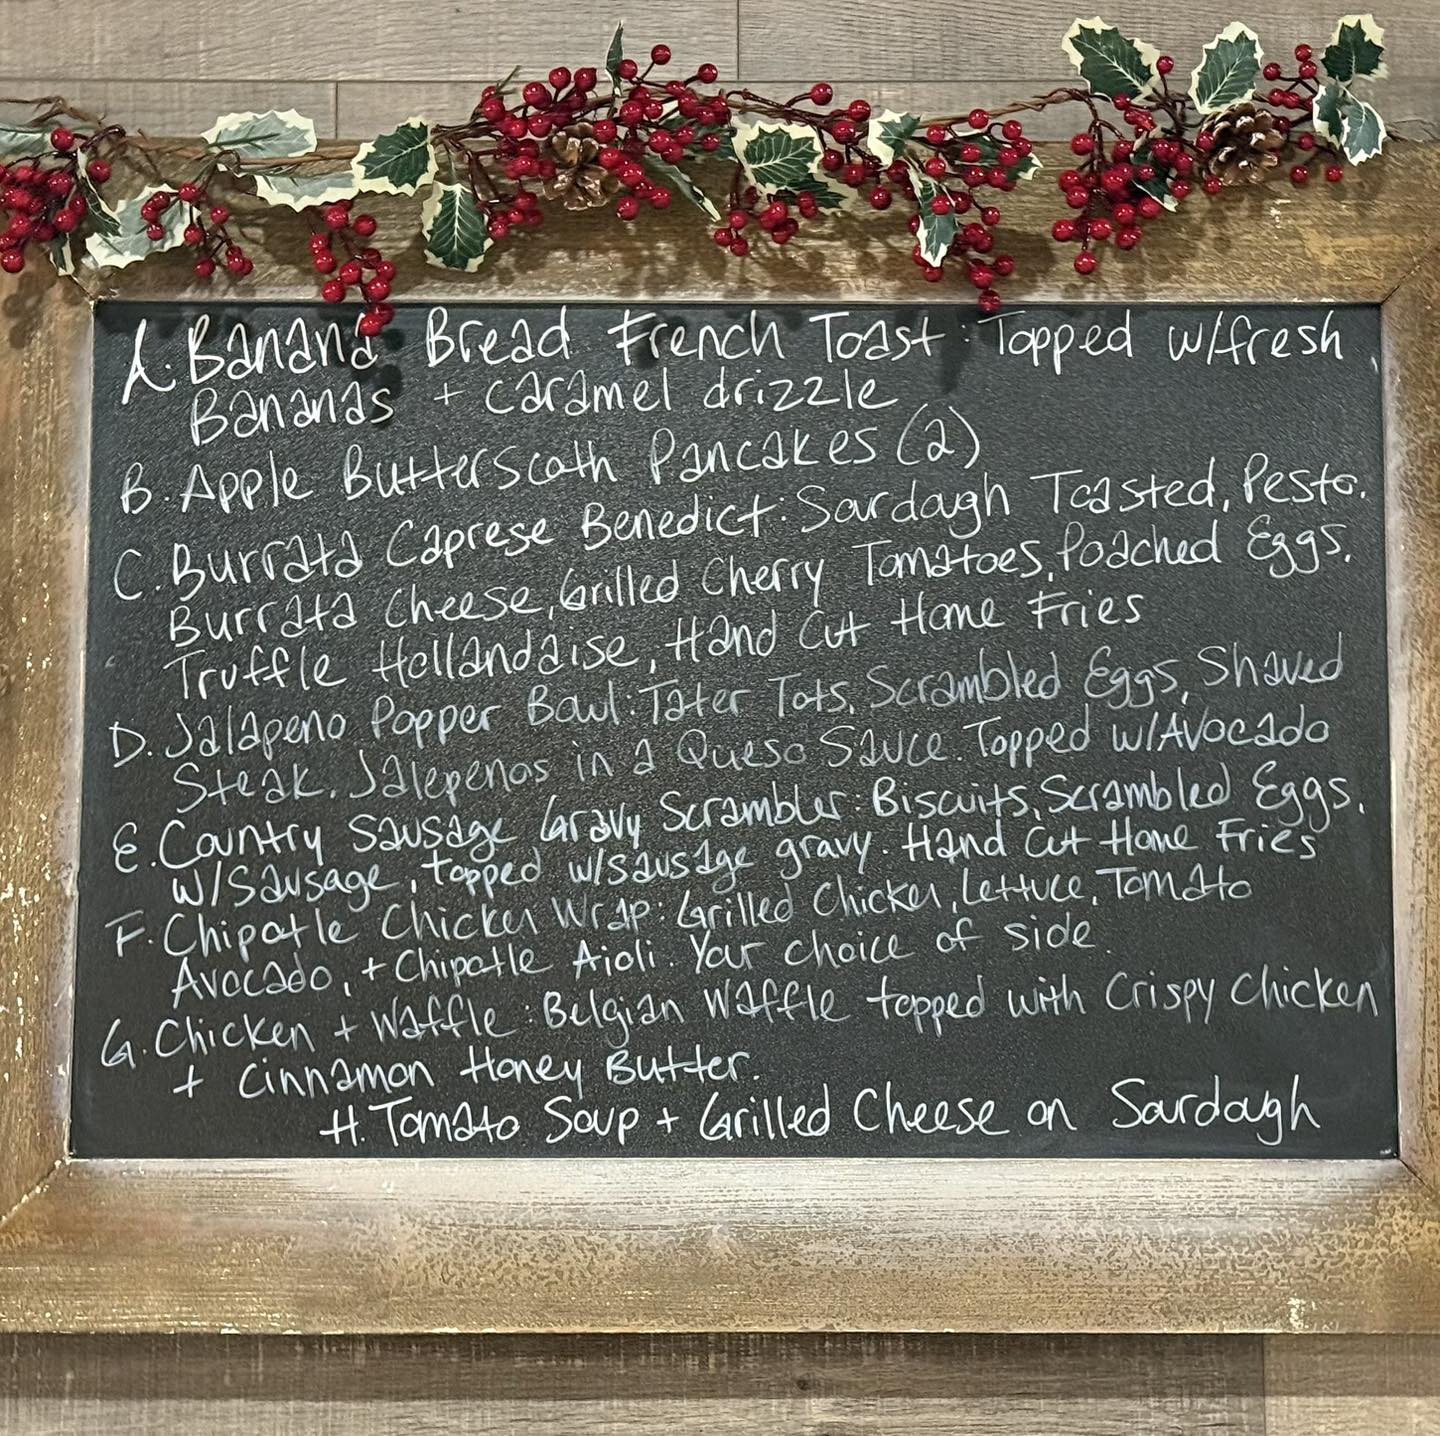 A. Banana Bread French Toast: Topped w/fresh
Bananas + caramel drizzle
B. Apple Butterscoth Pancakes (2)
C. Burrata Caprese Benedict: Sourdough Toasted, Pesto.
Burrata Cheese, Grilled Cherry Tomatoes, Poached Eggs.
Truffle Hollandaise, Hand Cut Home Fries
D. Jalapeno Popper Bowl: Tater Tots, Scrambled Eggs, Shaved
Steak, Jalepenos in a Queso Sauce. Topped w/Avocado
E. Country Sausage Gravy Scrambler: Biscuits, Scrambled Eggs,
w/Sausage, topped w/sausage gravy. Hand Cut Home Fries
F. Chipotle Chicken Wrap: Grilled Chicken, Lettuce, Tomato
Avocado, + Chipotle Aioli. Your choice of side.
G. Chicken + Waffle: Belgian Waffle topped with Crispy Chicken
+ Cinnamon Honey Butter.
H. Tomato Soup + Grilled Cheese on Sourdough